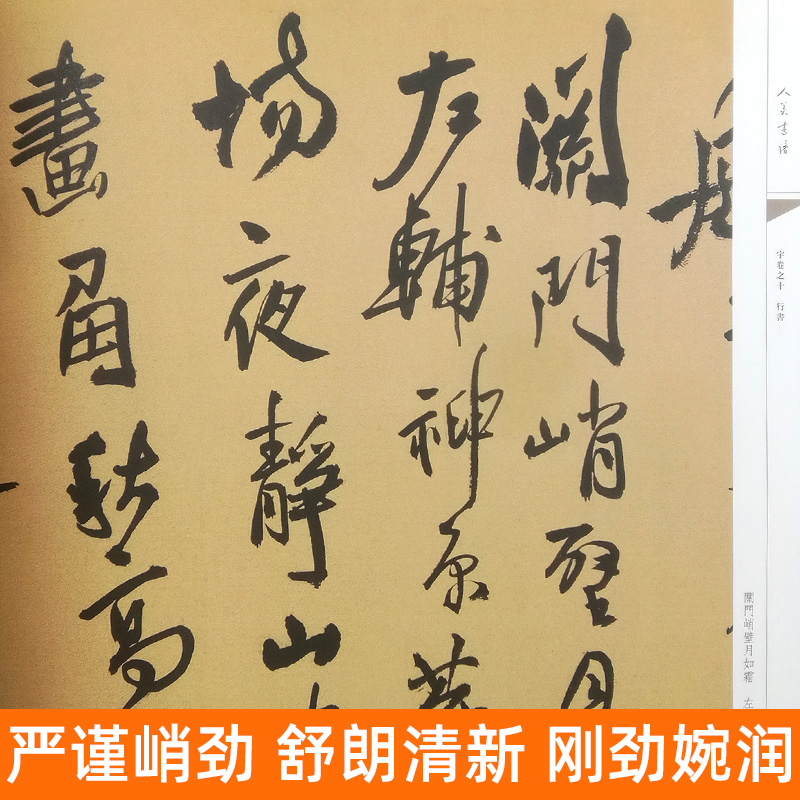 人美書譜
宇卷之十 行書
關門峭壁月如霜 左
關門峭壁月
左輔神原
場夜靜山
畫角秋高
严谨峭劲 舒朗清新 刚劲婉润